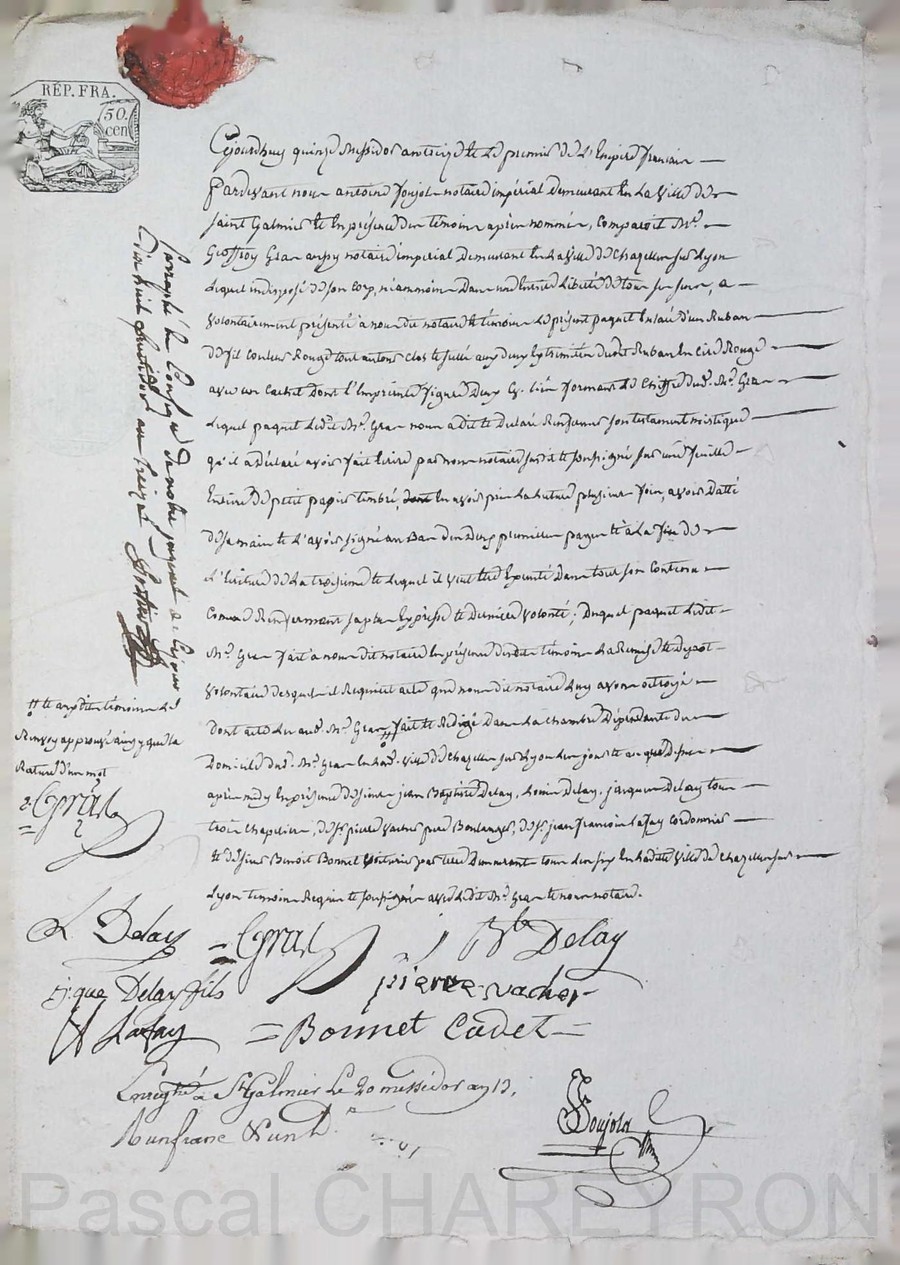 RÉP. FRA.
50.
cen
Cejourdhuy quinze Messidor an treize et le premier de L'Empire francais
Pardevant nous antoine Poujola notaire impérial demeurant En La Ville de
Saint Galmier et En présence des témoins après nommés, Comparoit Mr.
Geoffroy Gras aussy notaire impérial Demeurant En La Ville de Chazelles sur Lyon
Lequel indisposé de son Corps, néammoins Dans une Entiere Liberté de tous ses sens, a
Volontairement présenté à nous dit notaire et témoins Le présent paquet Enlacé d'un Ruban
de fil couleur Rouge tout autour clos et scellé aux deux Extrémités dudit Ruban En Cire Rouge
avec un Cachet Dont L'Empreinte figure Deux G. Liés formant Le Chiffre dud. Mr. Gras
Lequel paquet Ledit Mr. Gras nous a dit et Declaré Renfermer son testament mistique
qu'il a Déclaré avoir fait Ecrire par nous notaire sur une feuille
Entiere de petit papier timbré, En avoir pris La Lecture plusieurs fois, avoir Datté
de sa main et L'avoir signé au Bas des Deux premieres pages et à La fin de
L'Ecriture de La troisieme et Lequel il veut Etre Exécuté Dans tout son Contenu
Comme Renfermant sa plus Expresse et Derniere Volonté; Duquel paquet Ledit
Mr. Gras fait à nous dit notaire En présence desdits témoins La Remise et Depot
Volontaire desquels il Requiert acte que nous dit notaire Luy avons octroyé
Dont acte Lu aud. Mr. Gras fait et Rédigé Dans La Chambre Dépendante du
Domicile dud. Mr. Gras En Lad. Ville de Chazelles sur Lyon Les jour et an que Dessus
après midy En présence de sieurs jean Baptiste Delay, Louis Delay, jacques Delay tous
trois Chapeliers, de Sr. pierre Vacher pere Boulanger, de Sr. jean francois Lafay Cordonnier
et de sieur Benoit Bonnet Voiturier par terre Demeurant tous Les six En Ladite Ville de Chazelles sur
Lyon temoins Requis et soussignés avec Ledit Mr. Gras et nous notaire.
et auxdits témoins Le
Renvoy approuvé ainsy que La
Rature d'un mot
Gras
L Delay
Gras
j Bte Delay
jque Delay fils
pierre vacher
Lafay
Bonnet Cadet
Enregtré à St Galmier Le 20 messidor an 13.
un franc
Poujola
Pascal CHAREYRON